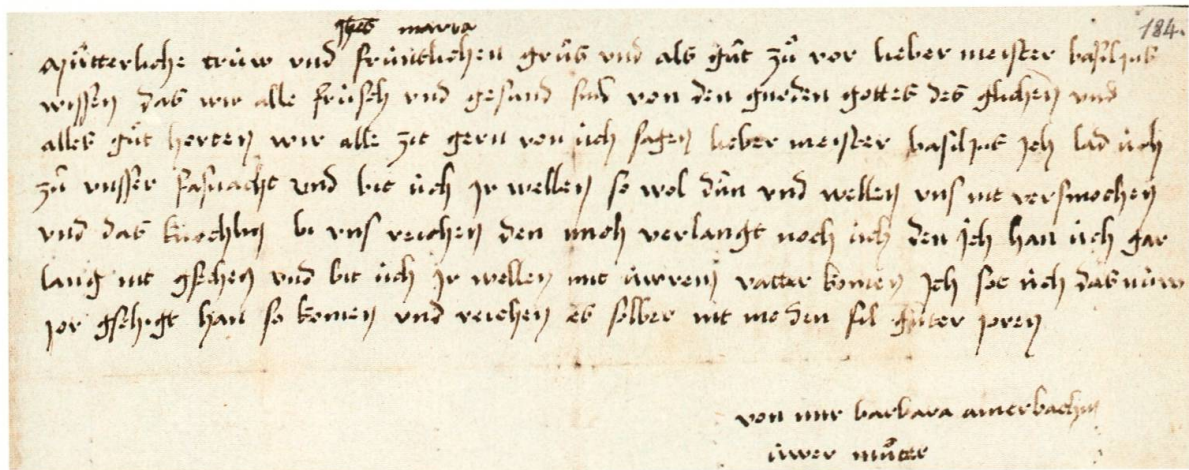 Jhes maria
184.
Můtterliche trüw vnd früntlichen grůs vnd als gůt zů vor lieber meister basilius
wissen das wir alle früsch vnd gesund sind von den gneden gottes des glichen vnd
alles gůt horten wir alle zit gern von üch sagen lieber meister basilius Jch lad üch
zů vnsser fasnacht vnd bit üch Jr wellen so wol důn vnd wellen vns nit versmochen
vnd das kůechlin bi vns reichen den mich verlangt noch üch den Jch han üch gar
lang nit gsehen vnd bit üch Jr wellen mit üwrem vatter komen Jch sot üch das nüw
jor gschigt han so komen vnd reichen es selber nit me den fil gůter joren
von mir barbara amerbachin
üwer můter